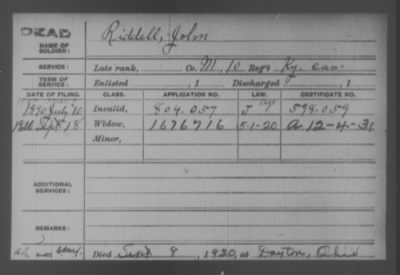 DEAD
NAME OF SOLDIER: Riddell, John
SERVICE: Late rank, Co. M, 10 Reg't Ky. Cav.
TERM OF SERVICE: Enlisted , 1 Discharged , 1
DATE OF FILING. CLASS. APPLICATION NO. LAW. CERTIFICATE NO.
1890 July 10 Invalid, 804.057 J Age 598.059
Sept 18 Widow, 1676716 5-1-20 A. 12-4-31
Minor,
ADDITIONAL SERVICES:
REMARKS:
Died Sept 8, 1930, at Dayton, Ohio